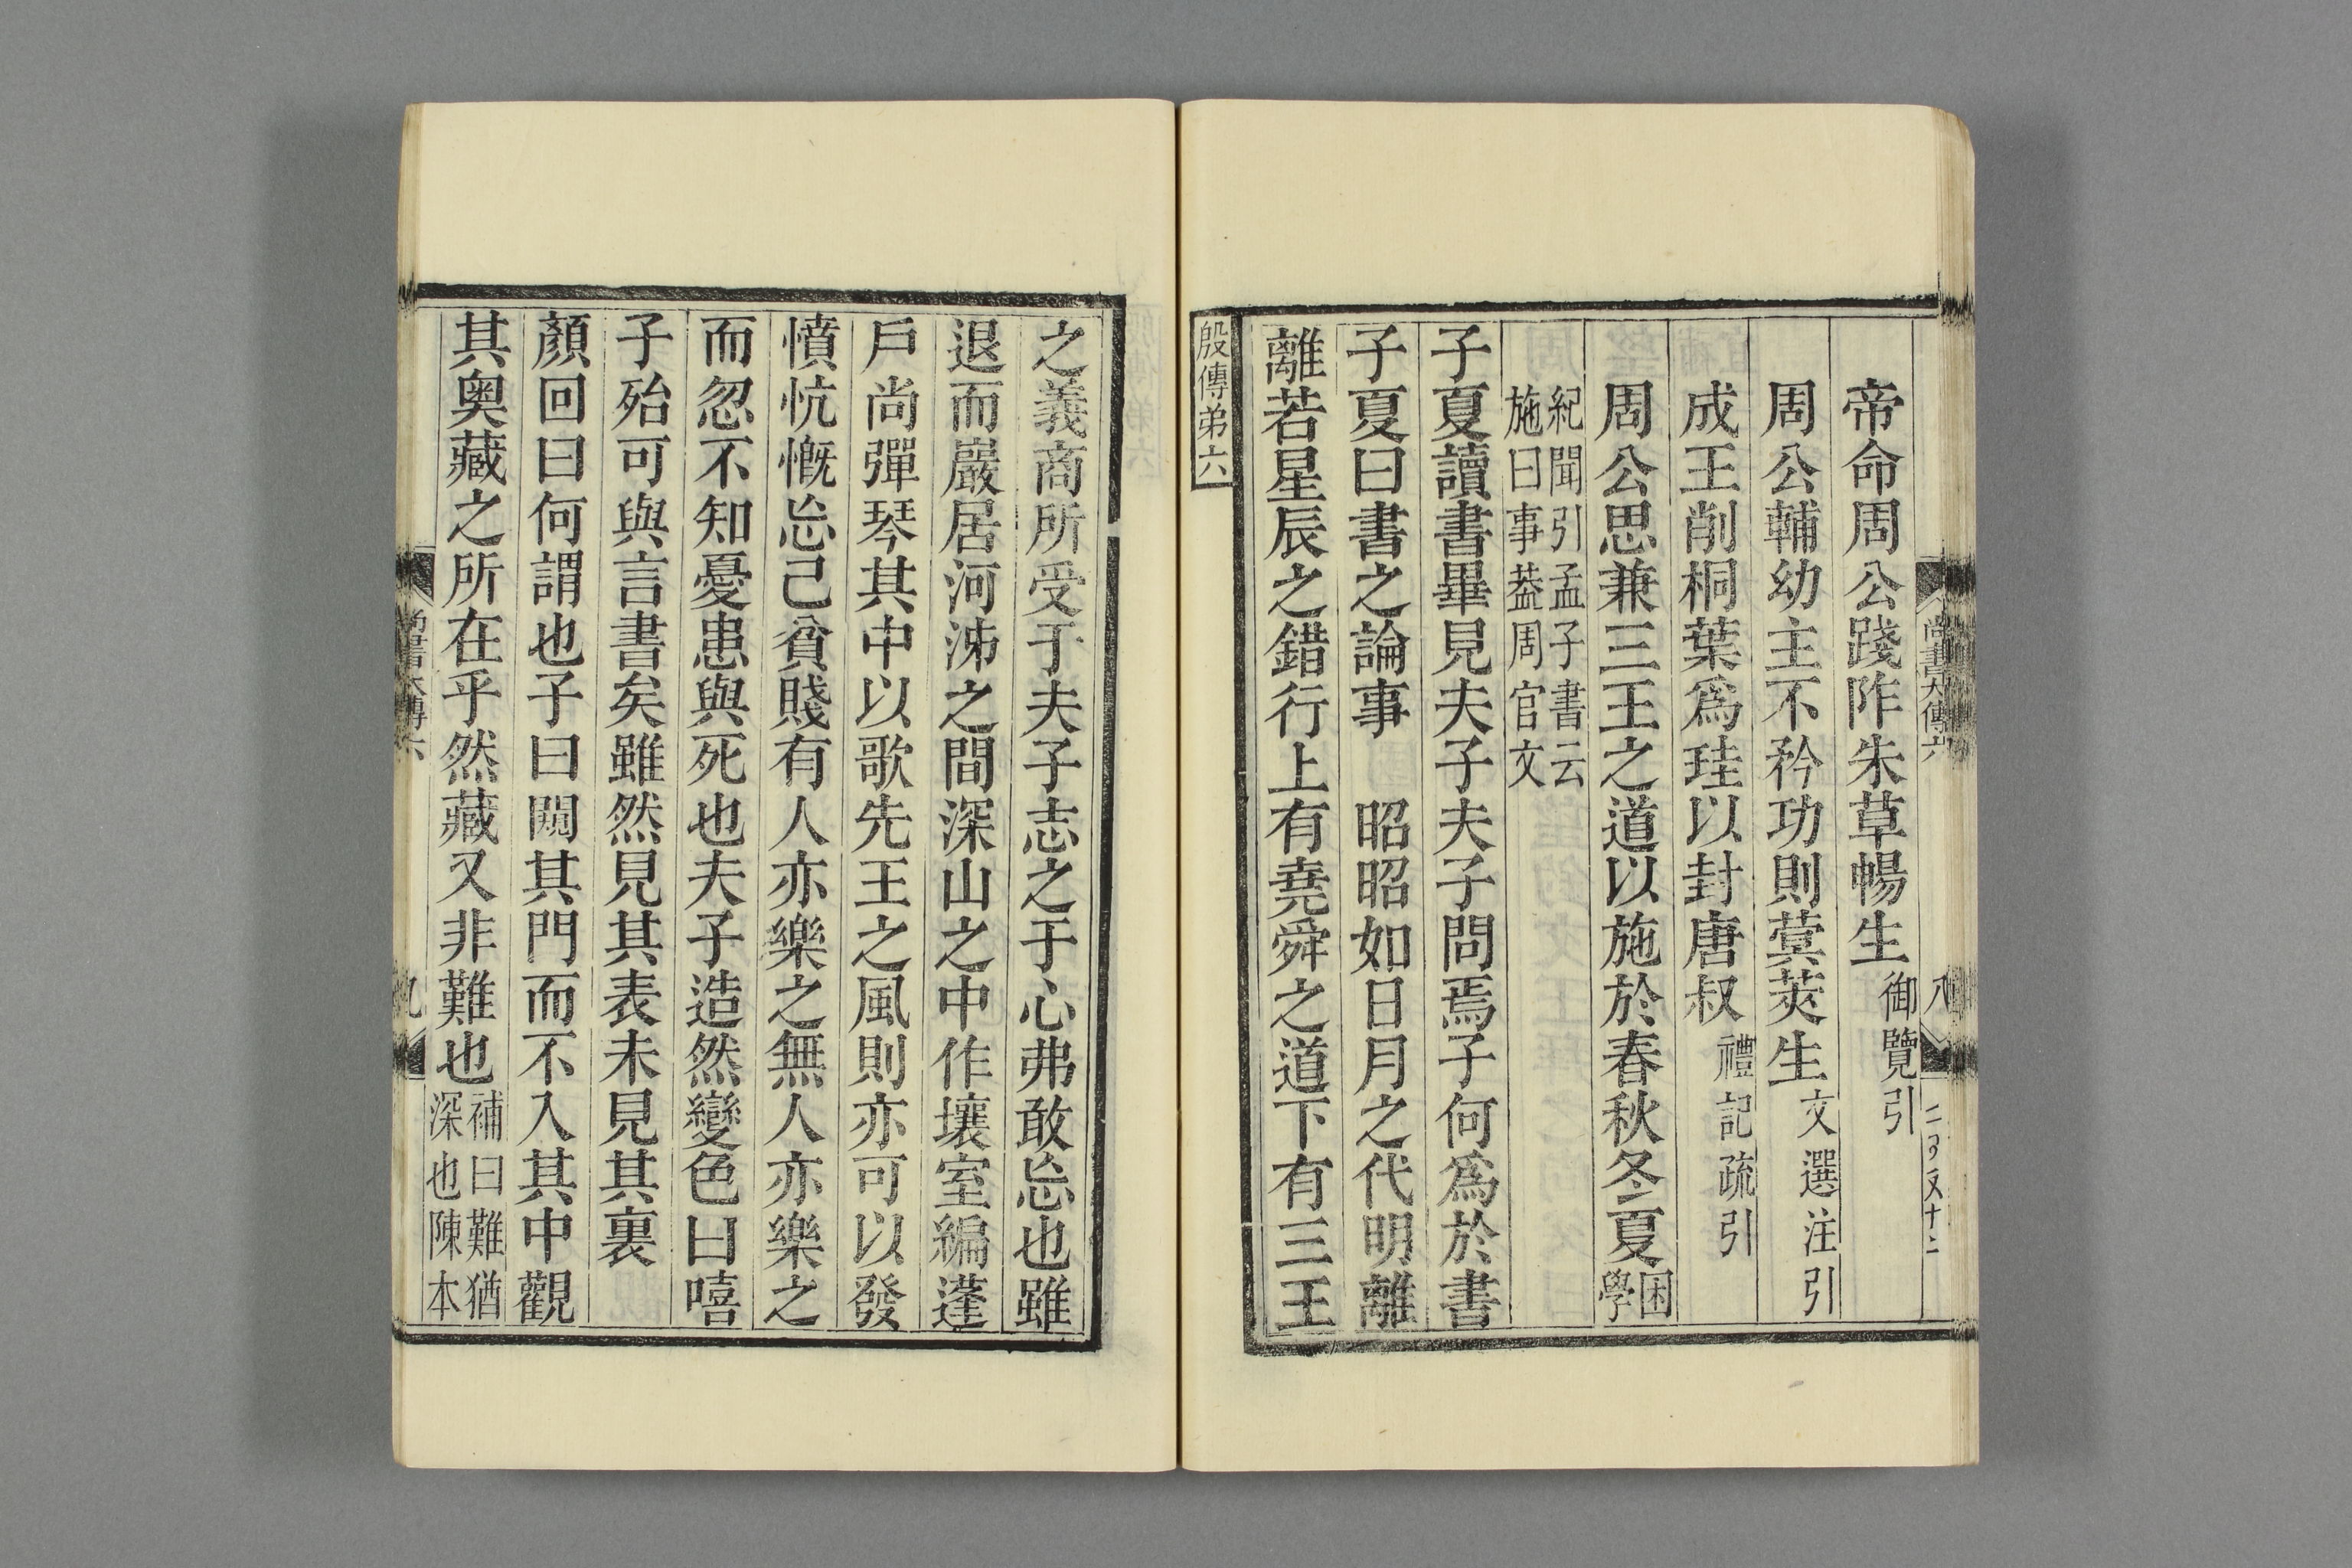 帝命周公踐阼朱草暢生御覽引
周公輔幼主不矜功則蓂莢生文選注引
成王削桐葉爲珪以封唐叔禮記疏引
周公思兼三王之道以施於春秋冬夏困學
紀聞引孟子書云
施曰事葢周官文
子夏讀書畢見夫子夫子問焉子何爲於書
子夏曰書之論事　昭昭如日月之代明離
離若星辰之錯行上有堯舜之道下有三王
殷傳弟六
之義商所受于夫子志之于心弗敢忘也雖
退而巖居河泲之間深山之中作壤室編蓬
戶尚彈琴其中以歌先王之風則亦可以發
憤忼慨忘己貧賤有人亦樂之無人亦樂之
而忽不知憂患與死也夫子造然變色曰嘻
子殆可與言書矣雖然見其表未見其裏
顏回曰何謂也子曰闚其門而不入其中觀
其奧藏之所在乎然藏又非難也
補曰難猶
深也陳本
尚書大傳六
八
尚書大傳六
九